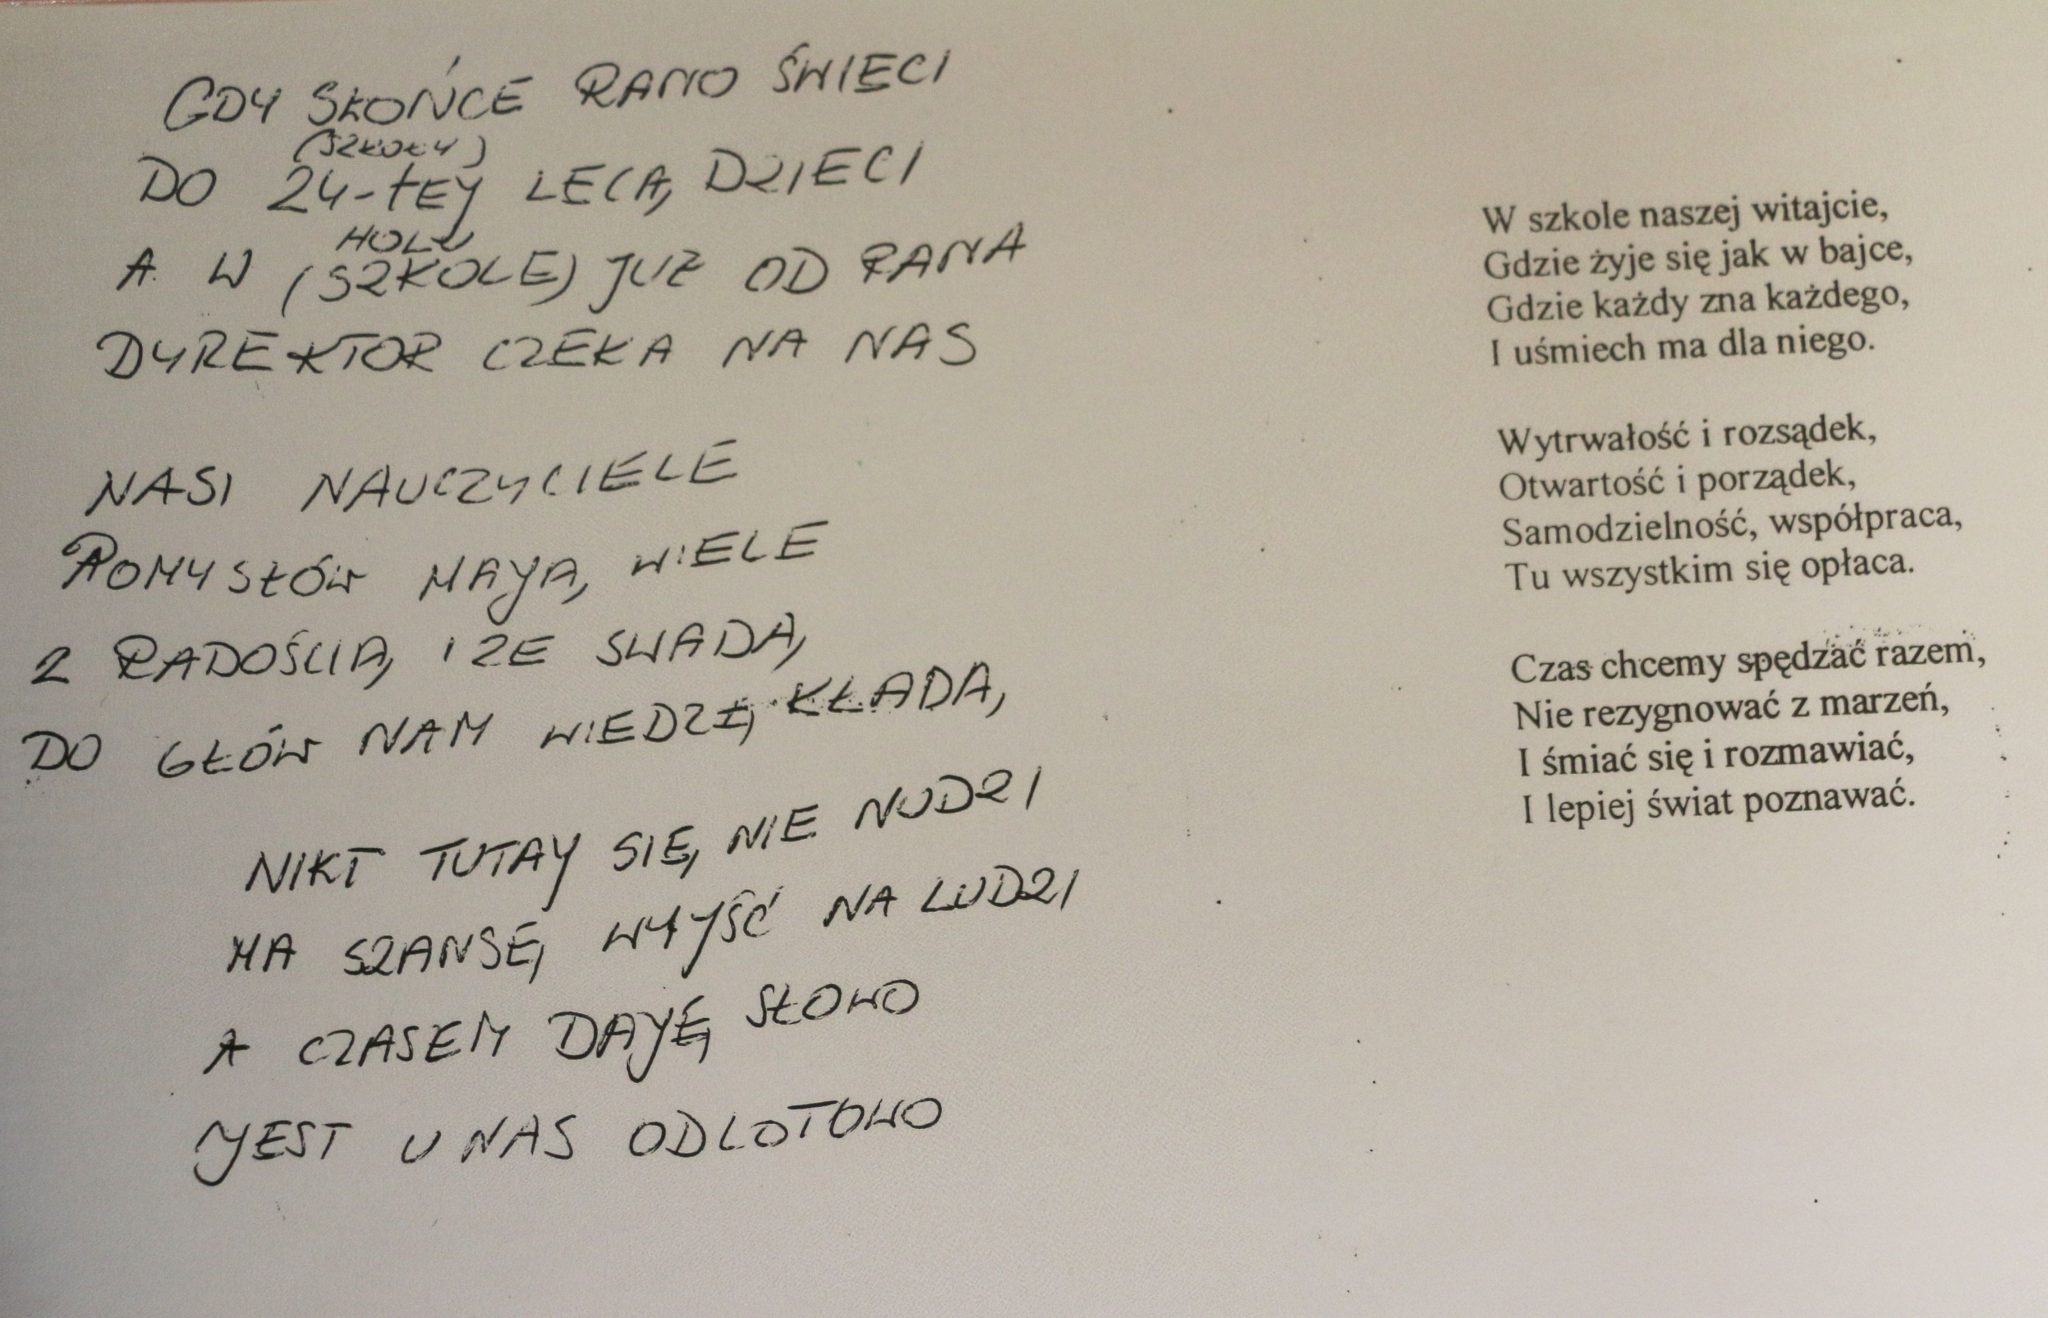 GDY SŁOŃCE RANO ŚWIĘCI
(SZKOŁY)
DO 24-tEJ LECĄ DZIECI
HOLU
A W (SZKOLE) JUŻ OD RANA
DYREKTOR CZEKA NA NAS
NASI NAUCZYCIELE
POMYSŁÓW MAJĄ WIELE
Z RADOŚCIĄ I ZE SWADĄ
DO GŁÓW NAM WIEDZĘ KŁADĄ
NIKT TUTAJ SIĘ NIE NUDZI
MA SZANSĘ WYJŚĆ NA LUDZI
A CZASEM DAJĘ SŁOWO
JEST U NAS ODLOTOWO
W szkole naszej witajcie,
Gdzie żyje się jak w bajce,
Gdzie każdy zna każdego,
I uśmiech ma dla niego.
Wytrwałość i rozsądek,
Otwartość i porządek,
Samodzielność, współpraca,
Tu wszystkim się opłaca.
Czas chcemy spędzać razem,
Nie rezygnować z marzeń,
I śmiać się i rozmawiać,
I lepiej świat poznawać.